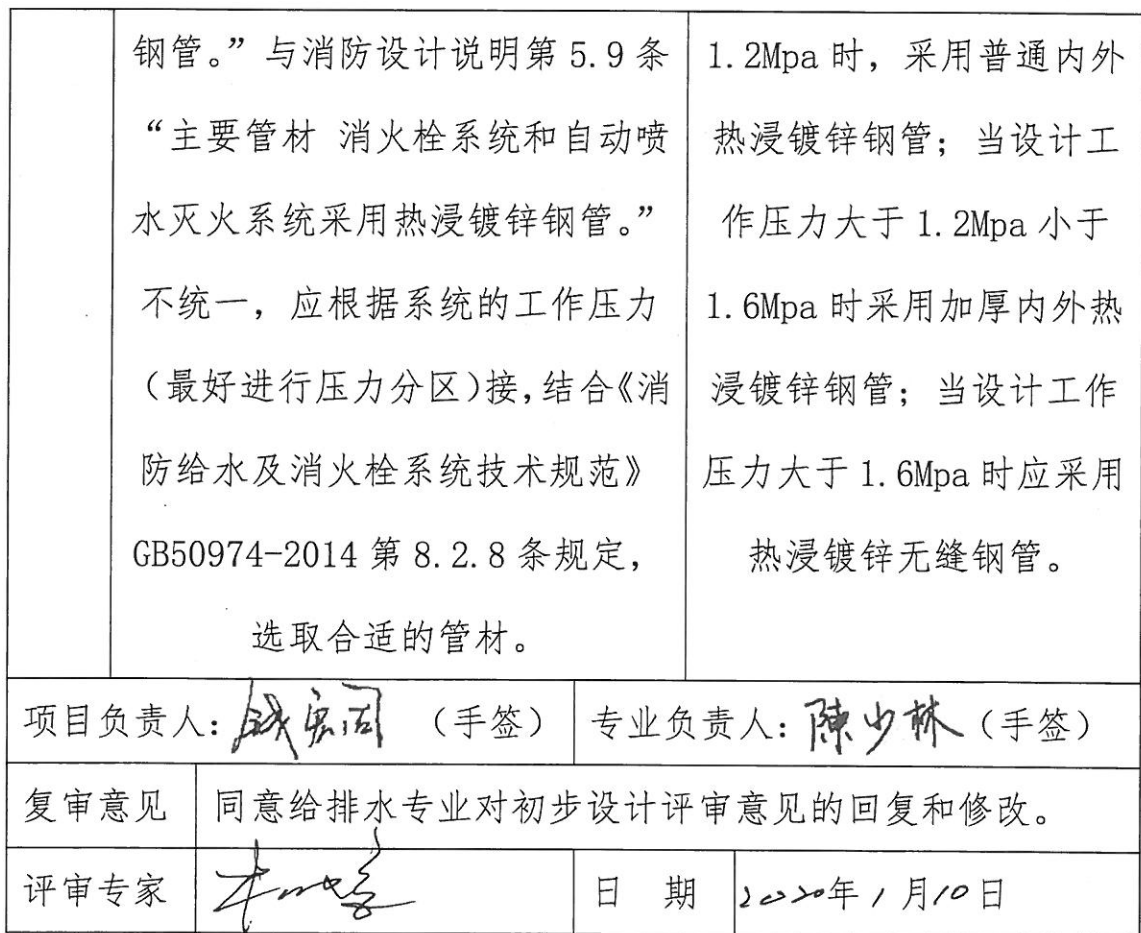 钢管。”与消防设计说明第 5.9 条
“主要管材 消火栓系统和自动喷
水灭火系统采用热浸镀锌钢管。”
不统一，应根据系统的工作压力
（最好进行压力分区）接，结合《消
防给水及消火栓系统技术规范》
GB50974-2014 第 8.2.8 条规定，
选取合适的管材。
1.2Mpa 时，采用普通内外
热浸镀锌钢管；当设计工
作压力大于 1.2Mpa 小于
1.6Mpa 时采用加厚内外热
浸镀锌钢管；当设计工作
压力大于 1.6Mpa 时应采用
热浸镀锌无缝钢管。
项目负责人：（手签）
专业负责人：陳少林（手签）
复审意见
同意给排水专业对初步设计评审意见的回复和修改。
评审专家
日 期
2020年1月10日